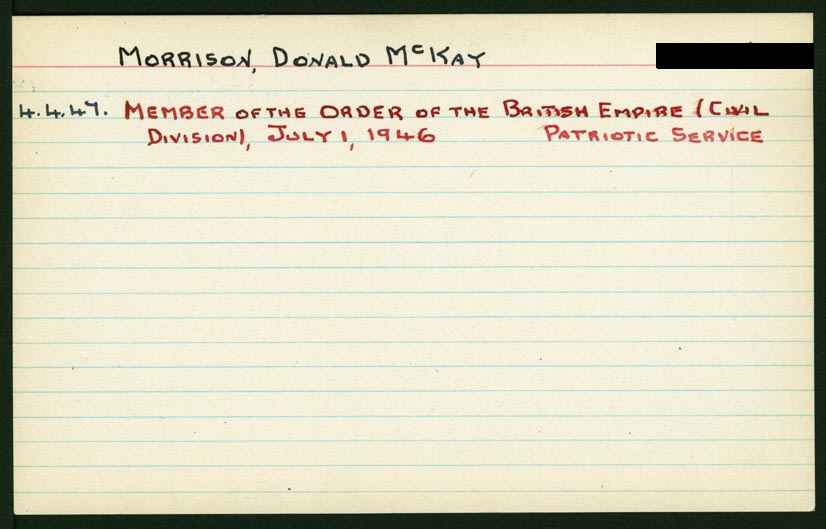 MORRISON, DONALD McKAY
4.4.47. MEMBER OF THE ORDER OF THE BRITISH EMPIRE (CIVIL
DIVISION), JULY 1, 1946 PATRIOTIC SERVICE